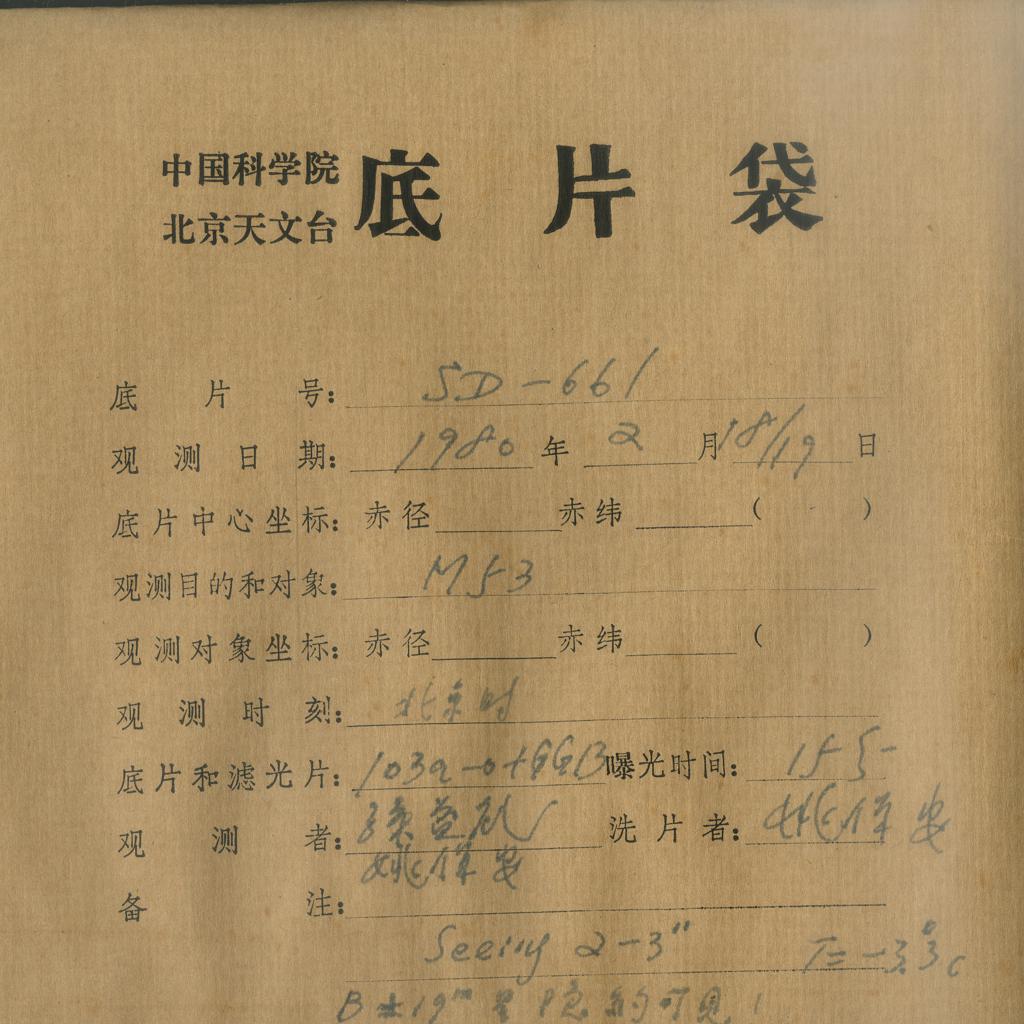 中国科学院
北京天文台
底片袋
底片号：SD-661
观测日期：1980年2月18/19日
底片中心坐标：赤径 赤纬 （ ）
观测目的和对象：M53
观测对象坐标：赤径 赤纬 （ ）
观测时刻：北京时
底片和滤光片：103a-o+GG13 曝光时间：
观测者： 洗片者：姚保安
姚保安
备注：
Seeing 2-3" T=-3.°3c
B 19m 星隐约可见！